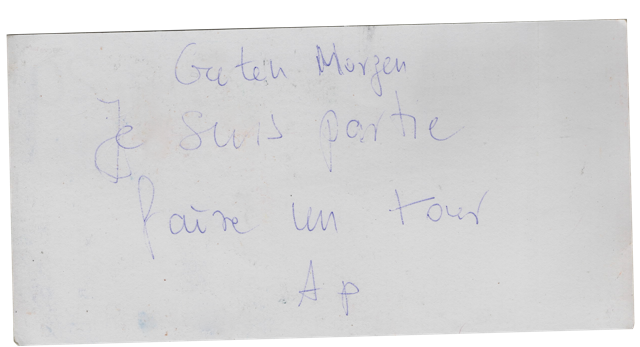 Guten Morgen
Je suis partie
faire un tour
A p